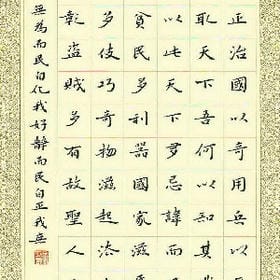 正治國以奇用兵以
取天下吾何以知其
以此天下多忌諱而
貧民多利器國家滋
多伎巧奇物滋起法
彰盜賊多有故聖人
無為而民自化我好靜而民自正我無